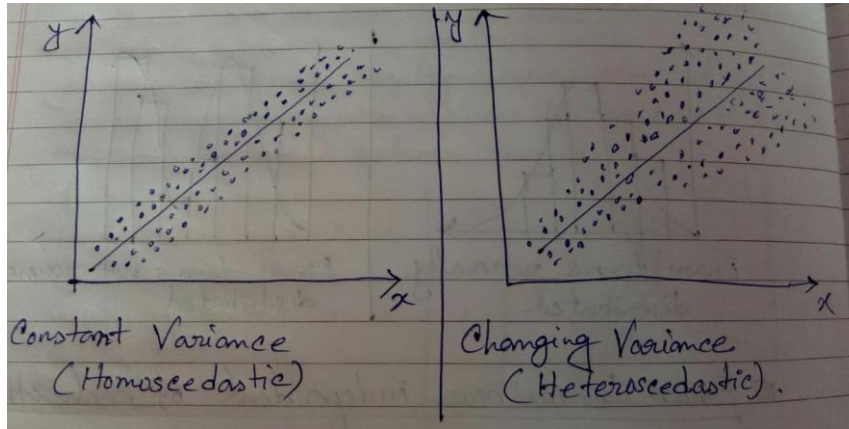 y
x
Constant Variance
(Homoscedastic)
y
x
Changing Variance
(Heteroscedastic).